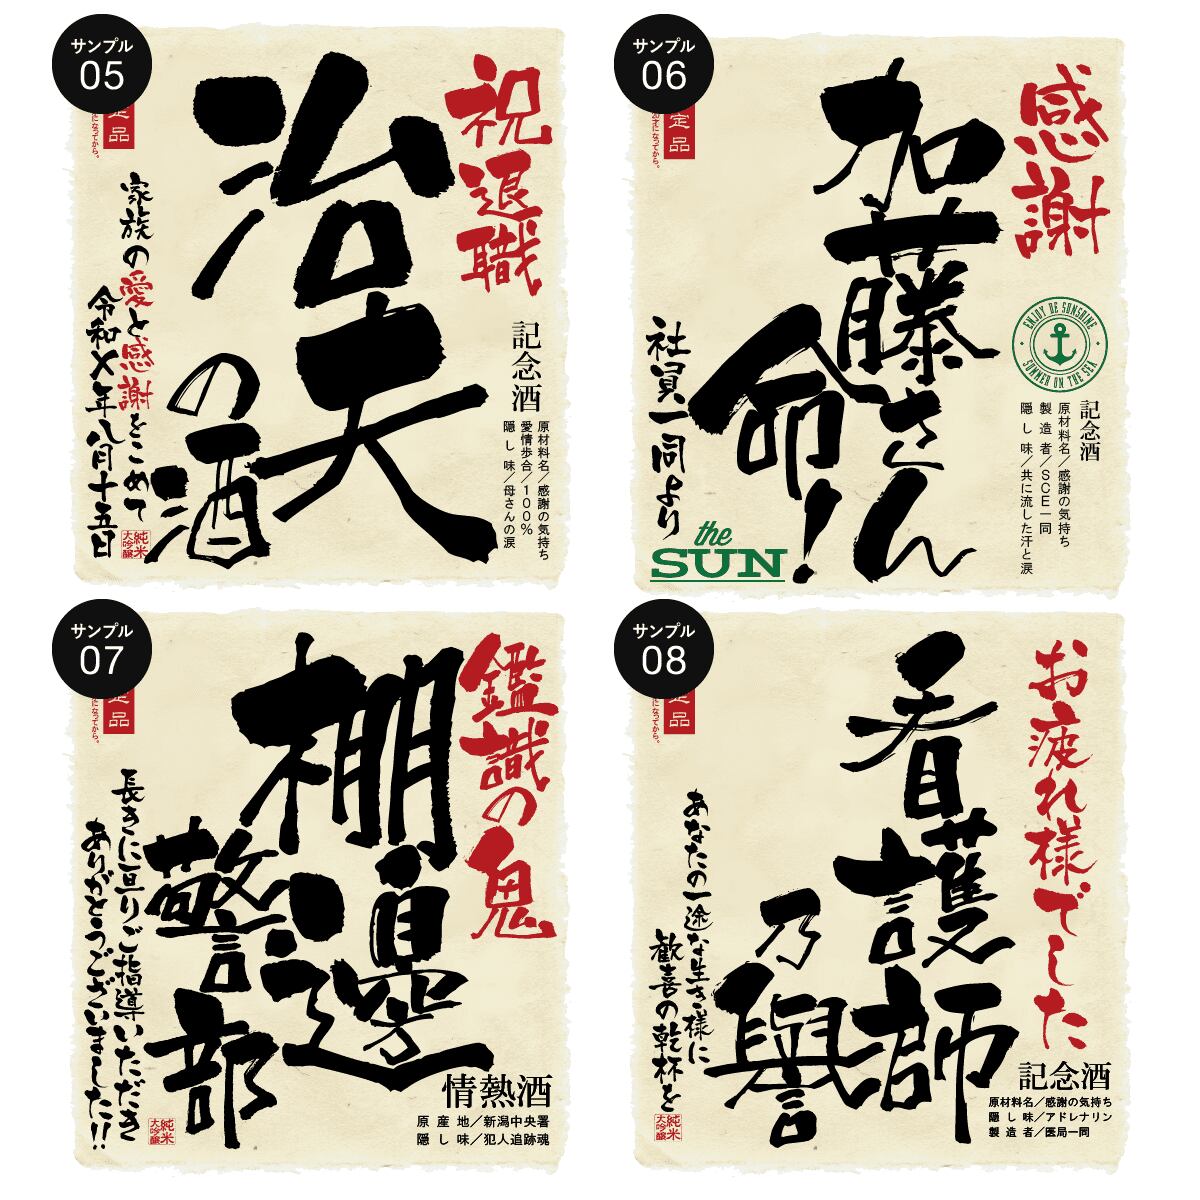 サンプル
05
定品
になってから。
祝退職
治夫
の酒
記念酒
原材料名／感謝の気持ち
愛情歩合／100％
隠し味／母さんの涙
家族の愛と感謝をこめて
令和X年八月十五日
純米
大吟醸
サンプル
06
定品
になってから。
感謝
加藤さん
命！
ENJOY BE SUNSHINE
SUMMER ON THE SEA
記念酒
原材料名／感謝の気持ち
製造者／SCE一同
隠し味／共に流した汗と涙
社員一同より
the
SUN
サンプル
07
定品
になってから。
鑑識の鬼
棚邊
警部
情熱酒
原産地／新潟中央署
隠し味／犯人追跡魂
長きに亘りご指導いただき
ありがとうございました!!
純米
大吟醸
サンプル
08
定品
になってから。
お疲れ様でした
看護師
乃譽
記念酒
原材料名／感謝の気持ち
隠し味／アドレナリン
製造者／医局一同
あなたの一途な生き様に
歓喜の乾杯を
純米
大吟醸